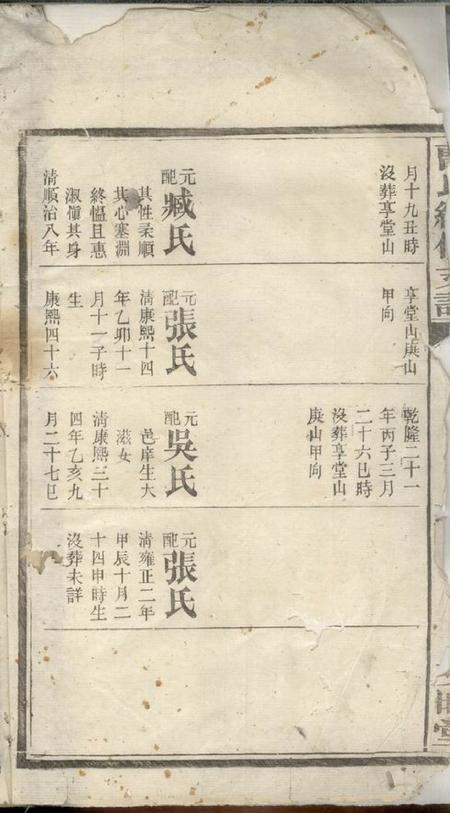 月十九丑時
沒葬享堂山
元配臧氏
其性柔順
其心塞淵
終慍且惠
淑慎其身
清順治八年
享堂山庚山
甲向
元配張氏
清康熙十四
年乙卯十一
月十一子時
生
康熙四十六
乾隆二十一
年丙子三月
二十六巳時
沒葬享堂山
庚山甲向
元配吳氏
邑庠生大
滋女
清康熙三十
四年乙亥九
月二十七巳
元配張氏
清雍正二年
甲辰十月二
十四申時生
沒葬未詳